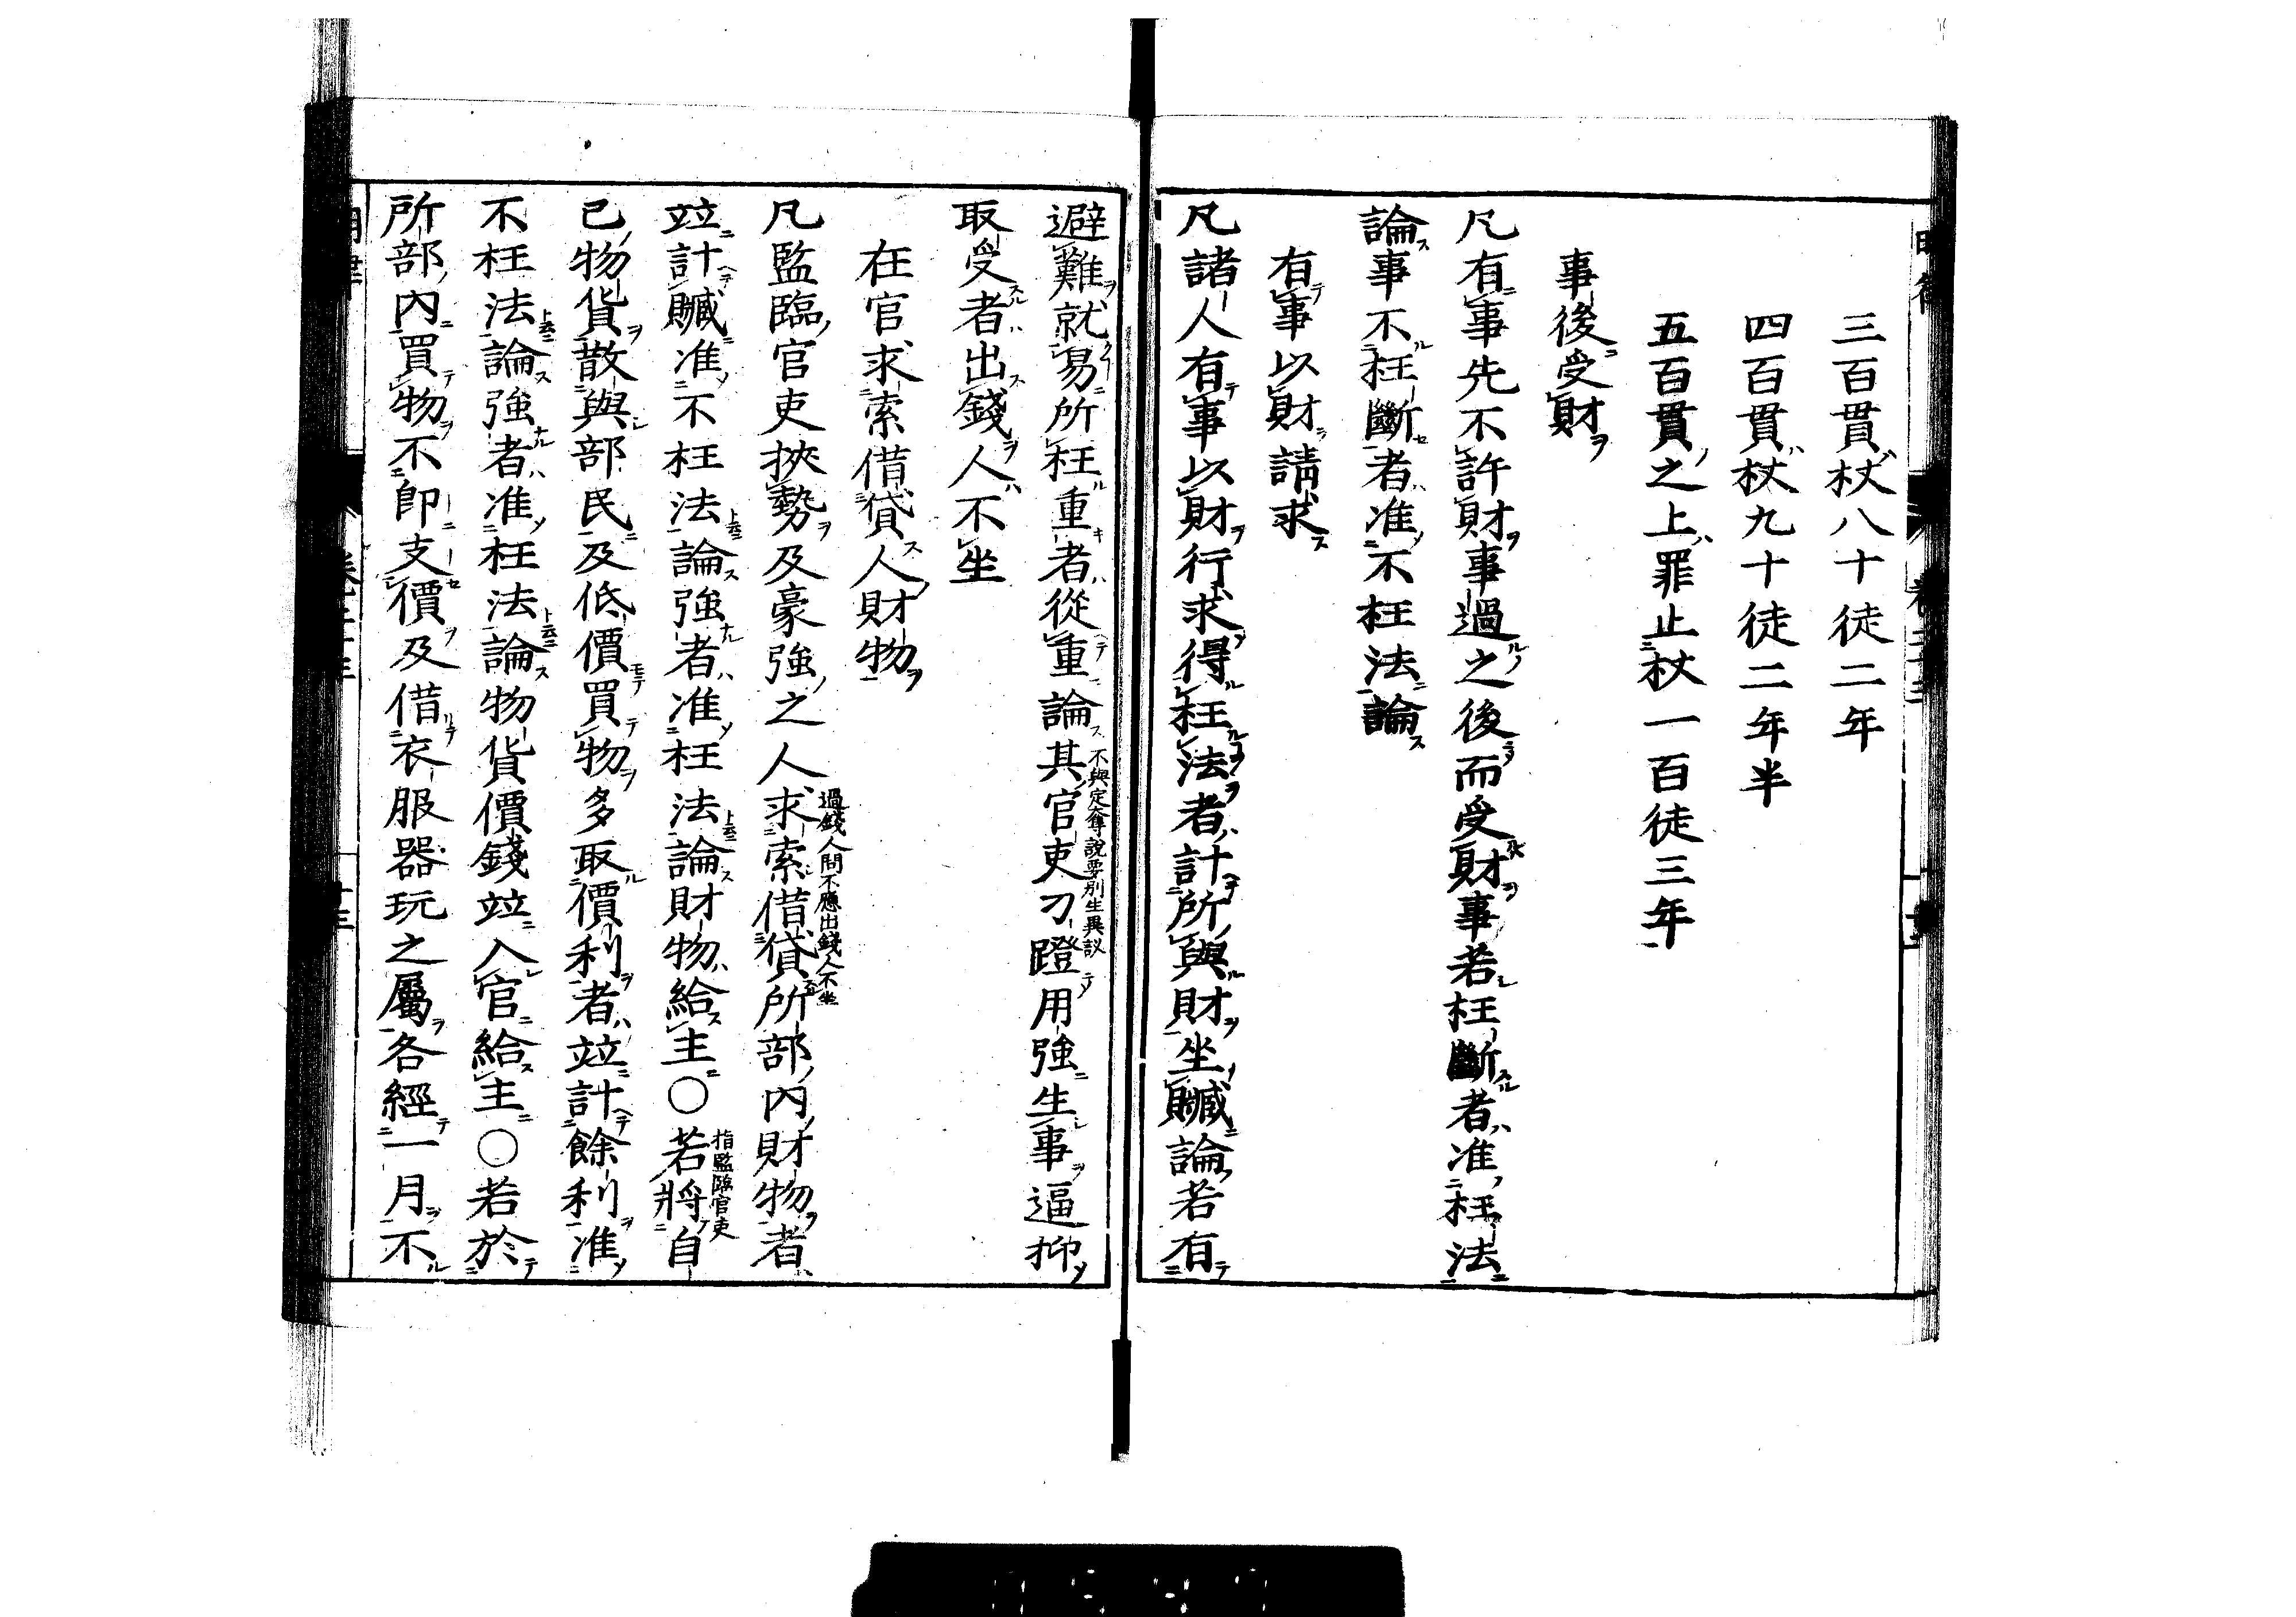 三百貫杖八十徒二年
四百貫杖九十徒二年半
五百貫之上罪止杖一百徒三年
事後受財
凡有事先不許財事過之後而受財事若枉斷者准枉法
論事不枉斷者准不枉法論
有事以財請求
凡諸人有事以財行求得枉法者計所與財坐贓論若有
避難就易所枉重者從重論其官吏刁蹬用強生事逼抑
不與定奪說要別生異議
取受者出錢人不坐
在官求索借貸人財物
過錢人問不應出錢人不坐
凡監臨官吏挾勢及豪強之人求索借貸所部內財物者
竝計贓准不枉法論強者准枉法論財物給主○若將自
指監臨官吏
己物貨散與部民及低價買物多取價利者竝計餘利准
不枉法論強者准枉法論物貨價錢竝入官給主○若於
所部內買物不即支價及借衣服器玩之屬各經一月不